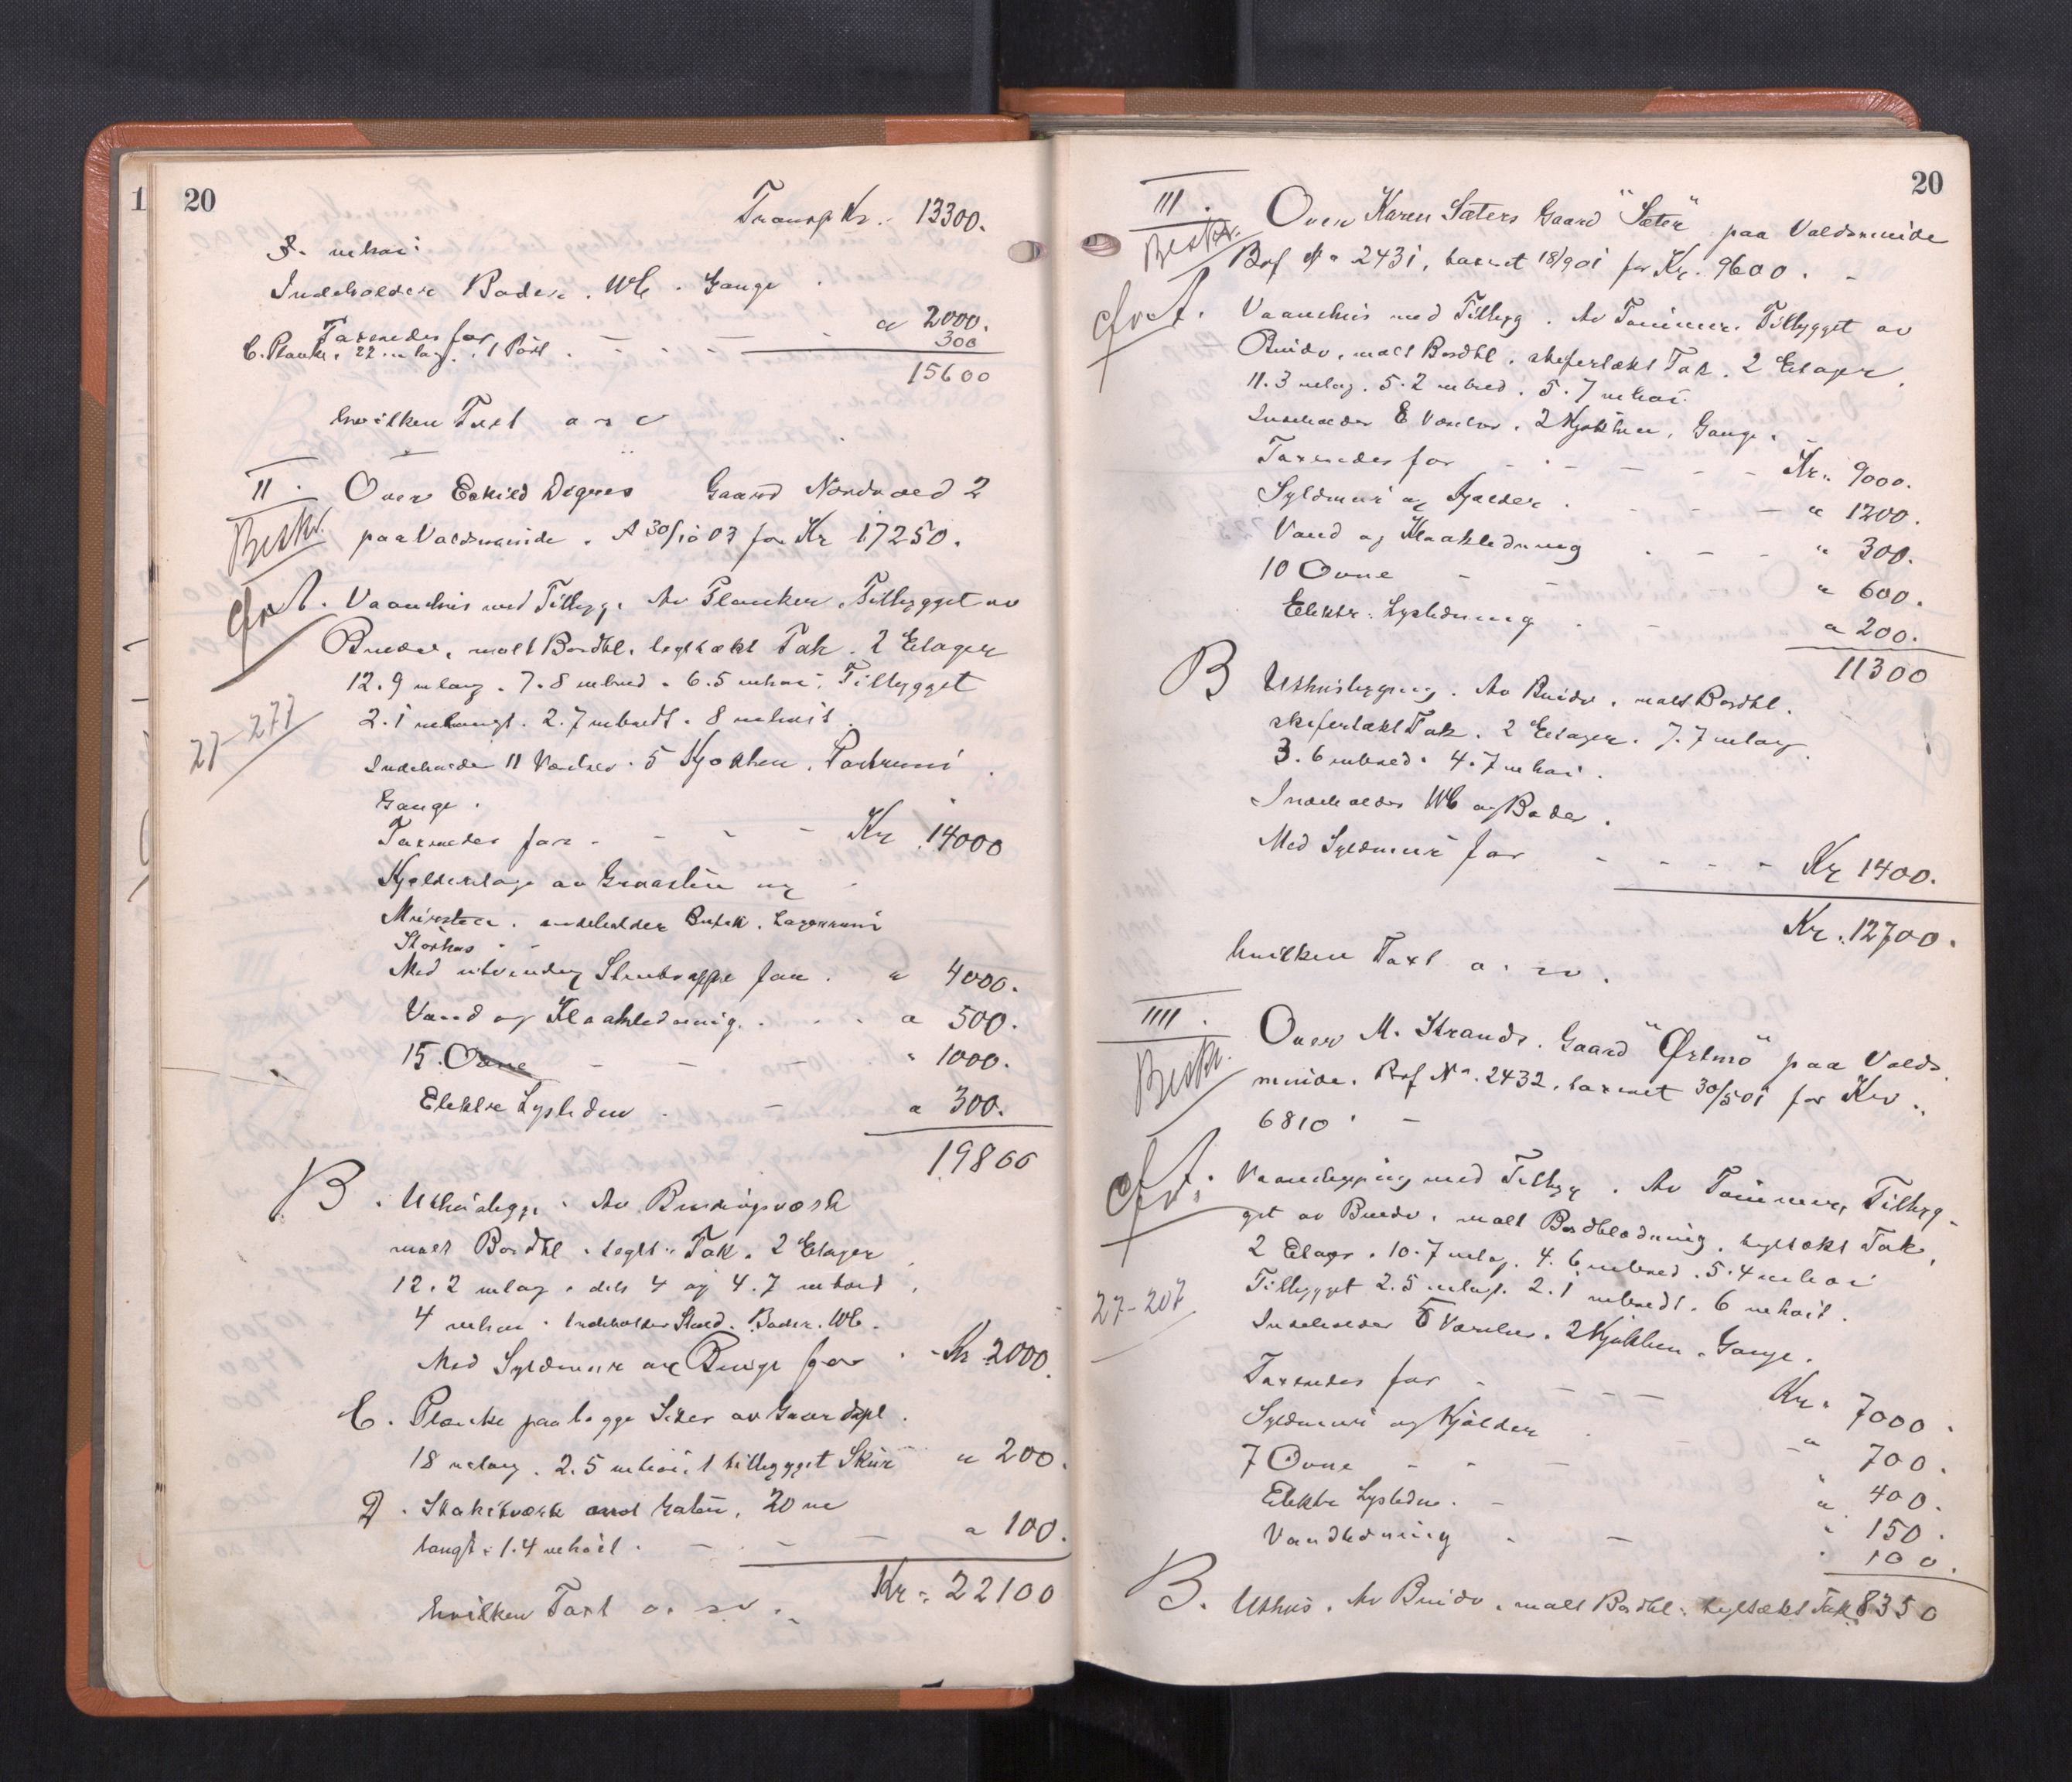 1 20
Transp Kr. 13300.
3. m høi
Indeholder Boder. WC. Gange.
Taxeredes for - - - " 2000.
C. Planke. 22 m lag. 1 Port. - - - 300
15600
hvilken Taxt o s v
II. Over Eskild Degnes Gaard Nordvoed 2
Beskr. paa Valdsminde. A 30/10 03 for Kr 17250.
A. Vaanehus med Tilbyg. Av Planker. Tilbygget av
Bindv, malt Bordkl. tegltækt Tak. 2 Etager
12.9 m lang. 7.8 m bred. 6.5 m høi. Tilbygget
2.1 m langt. 2.7 m bredt. 8 m høit.
27-277
Indeholder 11 Værelser. 5 Kjøkken,
Gange.
Taxeredes for. - - - Kr 14000
Kjelderetage av Graasten og
Mursten. indeholder Butik. Lagerrum
Med utvendig Stentrappe for. " 4000.
Vand og Kloakledning. - - " 500.
15. Ovne - - - " 1000.
Elektr Lysledn. - " 300.
19800
B. Uthusbygg. Av Bindingsværk
malt Bordkl. tegl " Tak. 2 Etager
12.2 m lag. dels 4 og 4.7 m bred.
4 m høi. Indeholder Stald. Boder. WC.
Med Syldmur og Binge for. - Kr 2000.
C. Planke paa begge Sider av Gaardspl.
18 m lang. 2.5 m høi. 1 tilbygget Skur " 200.
D. Stakitværk mot Gaten. 20 m
langt. 1.4 m høit. - - " 100.
Kr. 22100
hvilken Taxt o. s v.
20
III. Over Karen Sæters Gaard "Sæter" paa Valdsminde
Beskr. Brf No 2431, taxeret 18/9 01 for Kr. 9600. -
A. Vaanehus med Tilbyg. Av Tømmer. Tilbygget av
Bindv. malt Bordkl. skifertækt Tak. 2 Etager.
11.3 m lag. 5.2 m bred. 5.7 m høi.
Indeholder 8 Værelser. 2 Kjøkken, Gange.
Taxeredes for - - - - Kr. 9000.
Syldmur og Kjælder. - - " 1200.
Vand og Kloakledning. - - " 300.
10 Ovne - - " 600.
Elektr. Lysledning. - " 200.
11300
B Uthusbygning. Av Bindv. malt Bordkl.
skifertækt Tak. 2 Etager. 7.7 m lag
3.6 m bred. 4.7 m høi.
Indeholder WC og Boder.
Med Syldmur for - - - - Kr 1400.
Kr. 12700.
hvilken Taxt o. s v.
IIII. Over M. Strands. Gaard "Ørsmo" paa Valds
Beskr. minde. Brf No. 2432. taxeret 30/5 01 for Kr.
6810. -
A. Vaanebygning med Tilbyg. Av Tømmer, Tilbyg-
get av Bindv. malt Bordklædning. tegltækt Tak.
2 Etager. 10.7 m lag. 4.6 m bred. 5.4 m høi
27-207
Tilbygget 2.5 m lagt. 2.1 m bredt. 6 m høit.
Indeholder 5 Værelser. 2 Kjøkken. Gange.
Taxeredes for - - - - Kr. 7000.
Syldmur og Kjælder. " 700.
7 Ovne - - - " 400.
Elektr Lysledn. - " 150.
Vandledning - - " 100.
B. Uthus. Av Bindv. malt Bordkl. tegltækt Tak. 8350